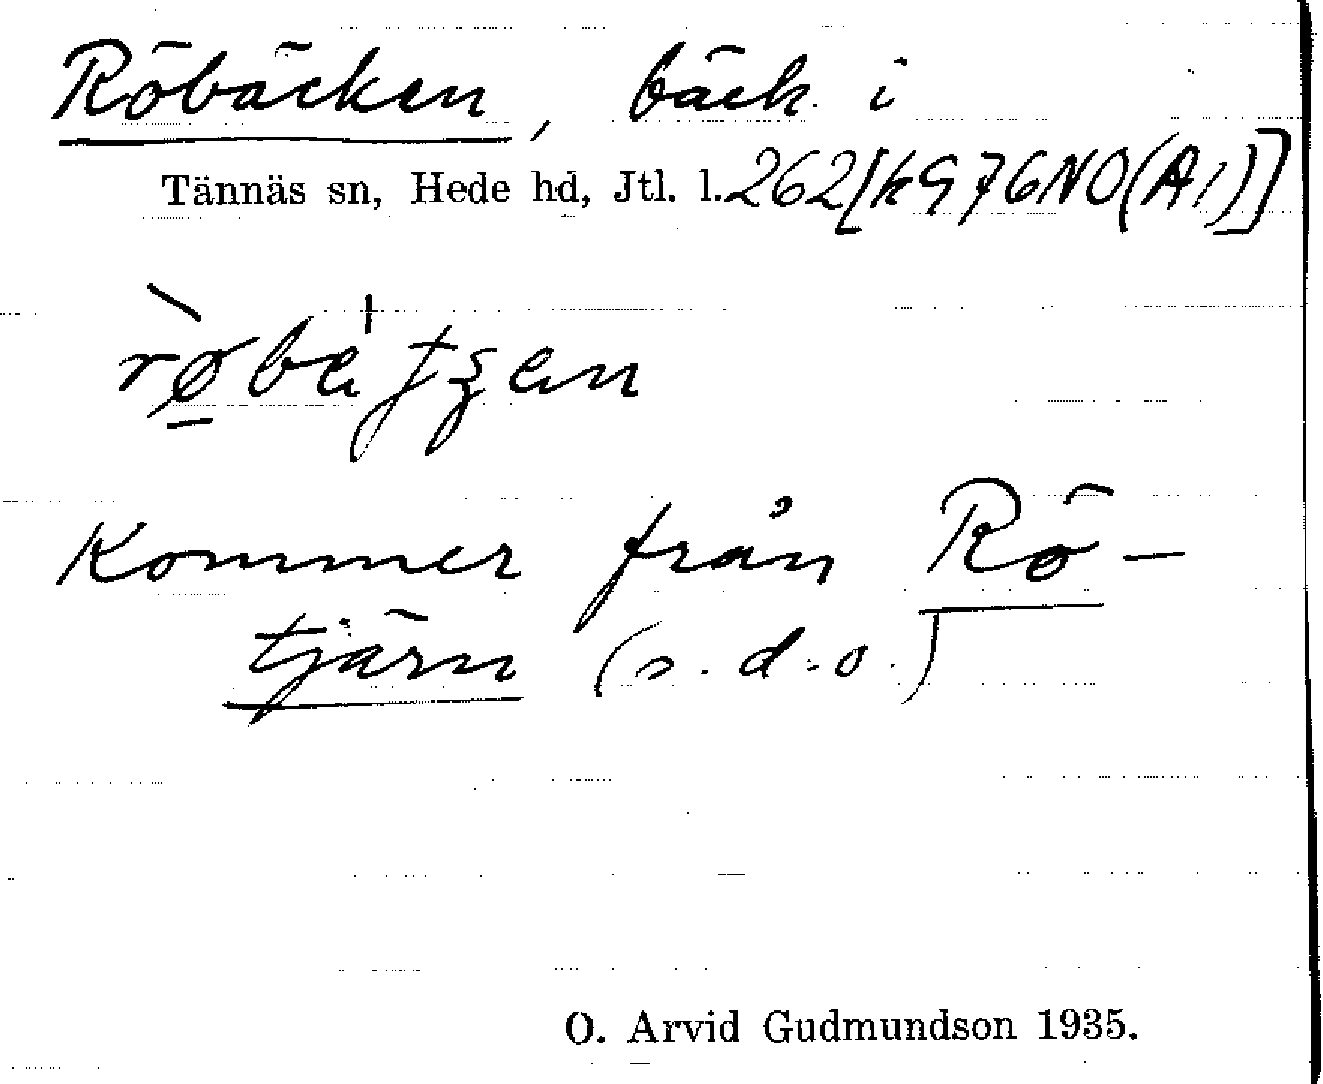 Röbäcken, bäck i
Tännäs sn, Hede hd, Jtl. l. 262[kG76NO(A1)]
Kommer från Rö-
tjärn (s.d.o.)
O. Arvid Gudmundson 1935.